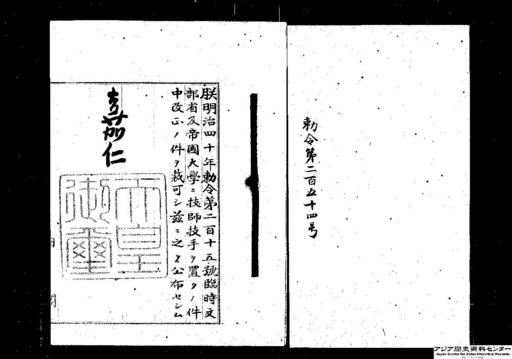 勅令第二百五十四号
朕明治四十年勅令第二百十五號臨時文
部省及帝國大學ニ技師技手ヲ置クノ件
中改正ノ件ヲ裁可シ茲ニ之ヲ公布セシム
嘉仁
天皇
御璽
アジア歴史資料センター
Japan Center for Asian Historical Records